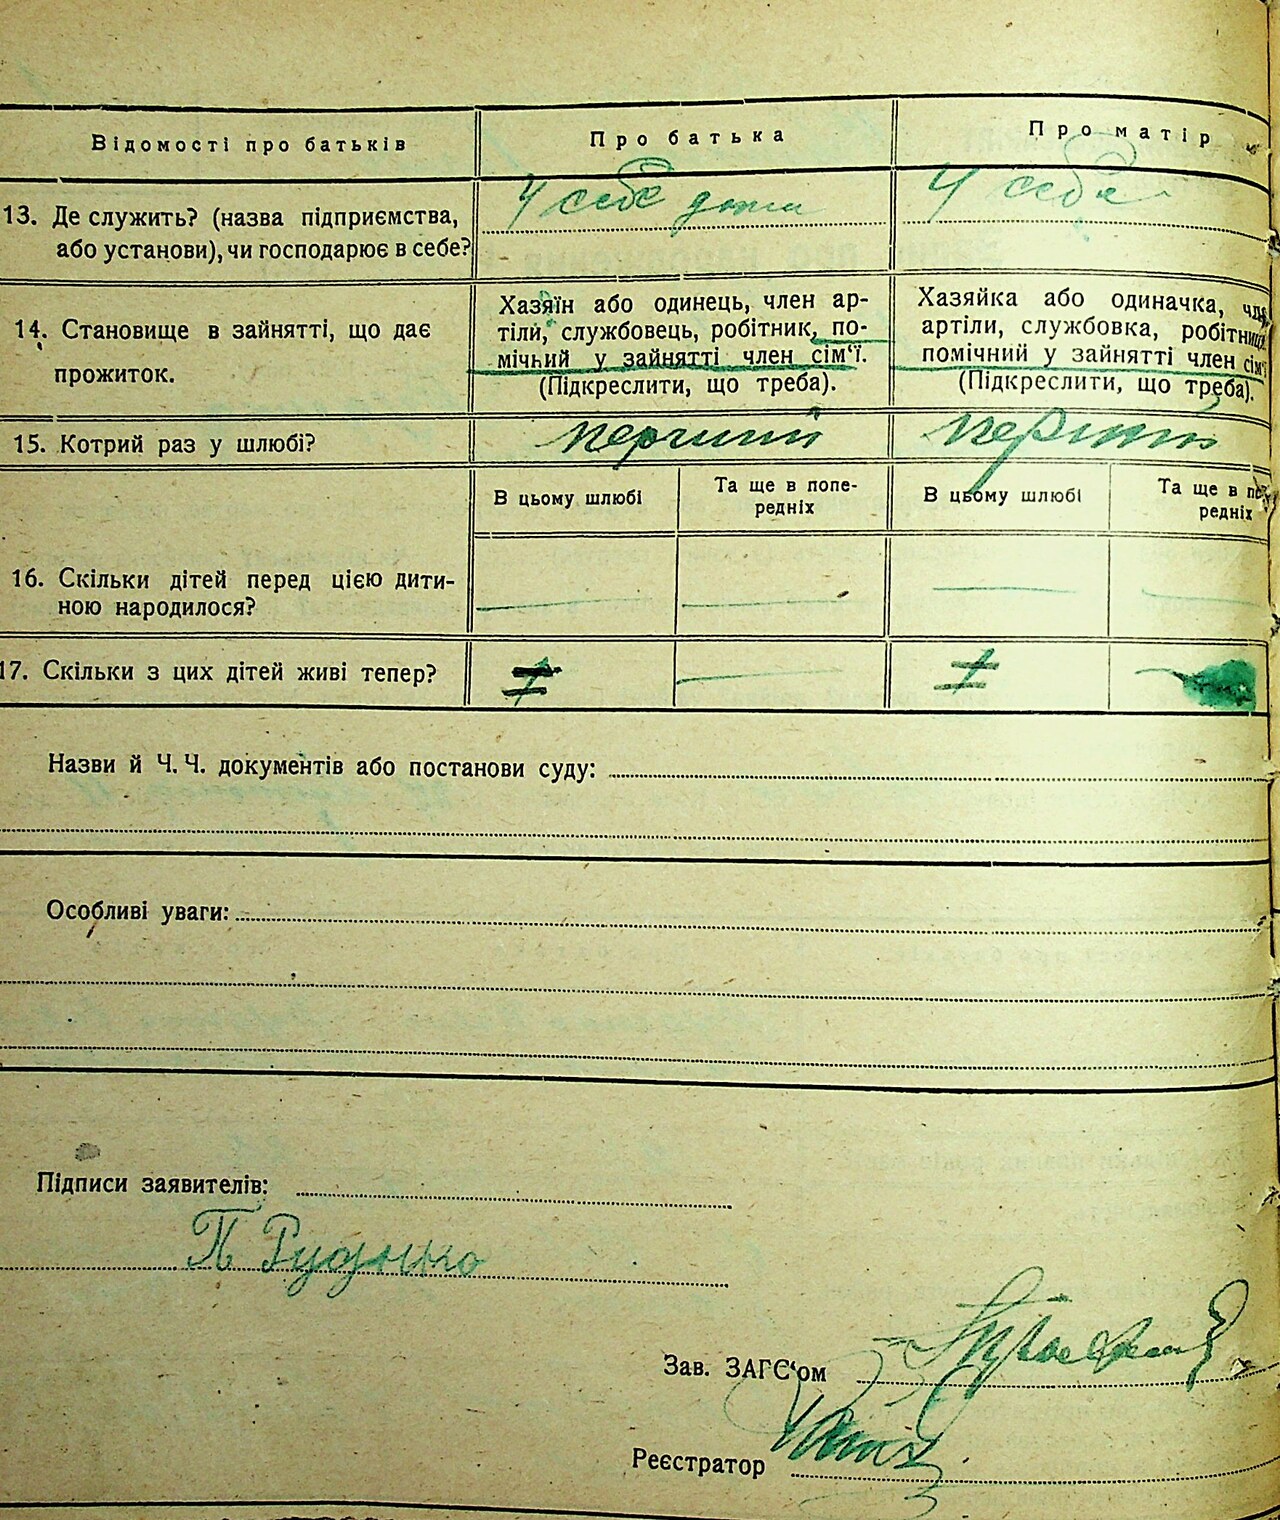 Відомості про батьків
Про батька
Про матір
13. Де служить? (назва підприємства,
або установи), чи господарює в себе?
У себе дома
У себе
14. Становище в зайнятті, що дає
прожиток.
Хазяїн або одинець, член ар-
тіли, службовець, робітник, по-
мічний у зайнятті член сім‘ї.
(Підкреслити, що треба).
Хазяйка або одиначка, член
артіли, службовка, робітниця,
помічний у зайнятті член сім‘ї
(Підкреслити, що треба).
15. Котрий раз у шлюбі?
перший
перший
В цьому шлюбі
Та ще в попе-
редніх
В цьому шлюбі
Та ще в по
редніх
16. Скільки дітей перед цією дити-
ною народилося?
— — — —
17. Скільки з цих дітей живі тепер?
1 — 1 —
Назви й Ч. Ч. документів або постанови суду:
Особливі уваги:
Підписи заявителів:
П Руденко
Зав. ЗАГС‘ом
Реєстратор